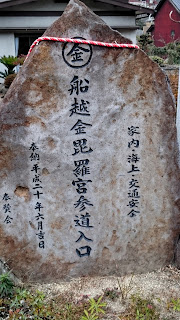 家内・海上・交通安全
金
船越金毘羅宮参道入口
奉納平成二十年六月吉日
奉賛会